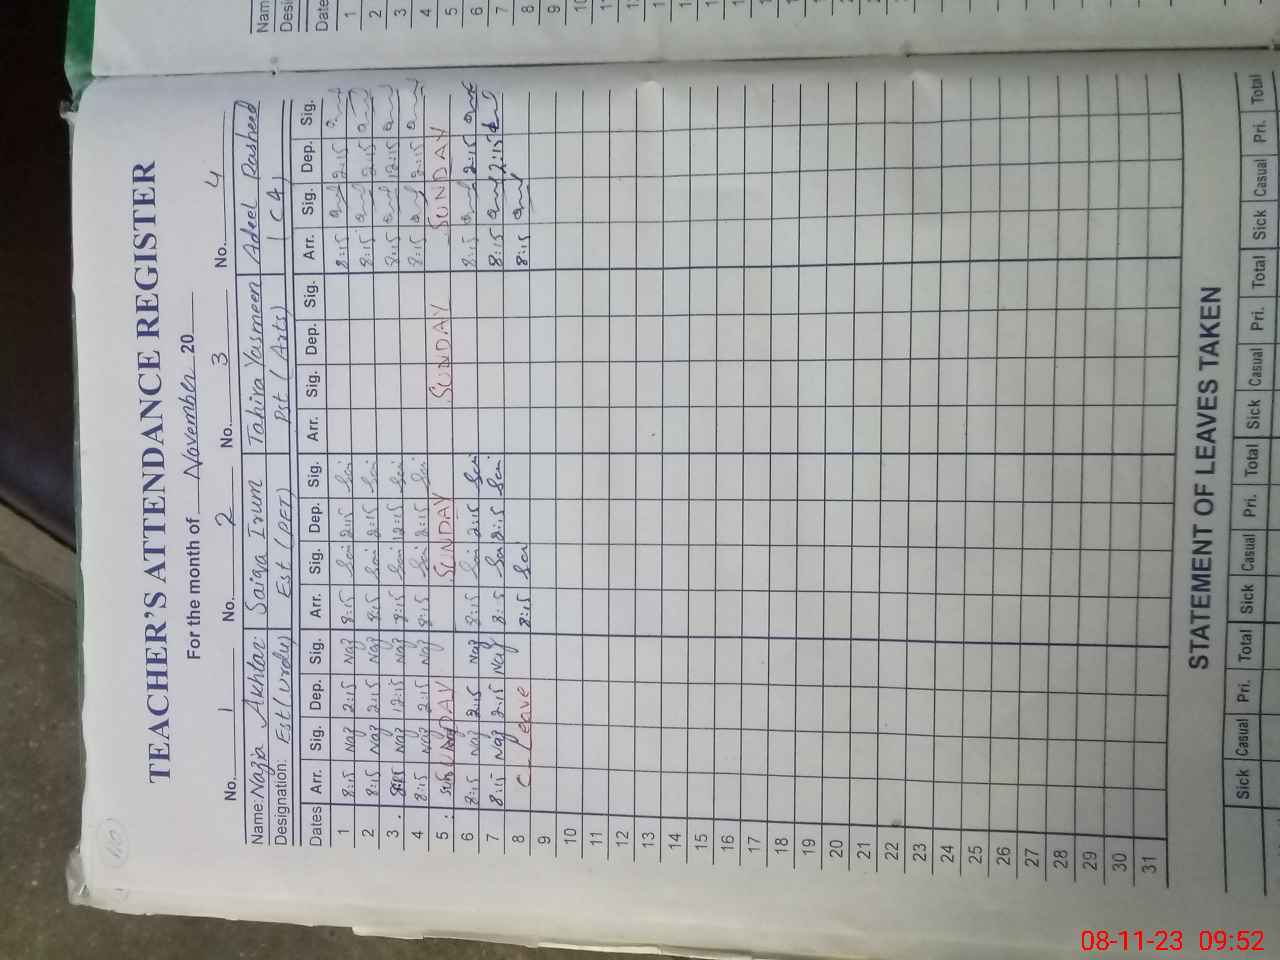 TEACHER'S ATTENDANCE REGISTER
For the month of November 20
No. 1 No. 2 No. 3 No. 4
Name: Nazia Akhtar Saiqa Irum Tahira Yasmeen Adeel Rasheed
Designation: Est (Urdu) Est (PET) Pst (Arts) (C4)
Dates Arr. Sig. Dep. Sig. Arr. Sig. Dep. Sig. Arr. Sig. Dep. Sig. Arr. Sig. Dep. Sig.
1 8:15 Naz 2:15 Naz 8:15 Sai 2:15 Sai 8:15 2:15
2 8:15 Naz 2:15 Naz 8:15 Sai 2:15 Sai 8:15 2:15
3 8:15 Naz 12:15 Naz 8:15 Sai 12:15 Sai 8:15 12:15
4 8:15 Naz 2:15 Naz 8:15 Sai 2:15 Sai 8:15 2:15
5 SUNDAY SUNDAY SUNDAY SUNDAY
6 8:15 Naz 2:15 Naz 8:15 Sai 2:15 Sai 8:15 2:15
7 8:15 Naz 2:15 Naz 8:15 Sai 2:15 Sai 8:15 2:15
8 C Leave 8:15 Sai 8:15
9
10
11
12
13
14
15
16
17
18
19
20
21
22
23
24
25
26
27
28
29
30
31
STATEMENT OF LEAVES TAKEN
Sick Casual Pri. Total Sick Casual Pri. Total Sick Casual Pri. Total Sick Casual Pri. Total
Nam
Desi
Date
1
2
3
4
5
6
7
8
9
08-11-23 09:52